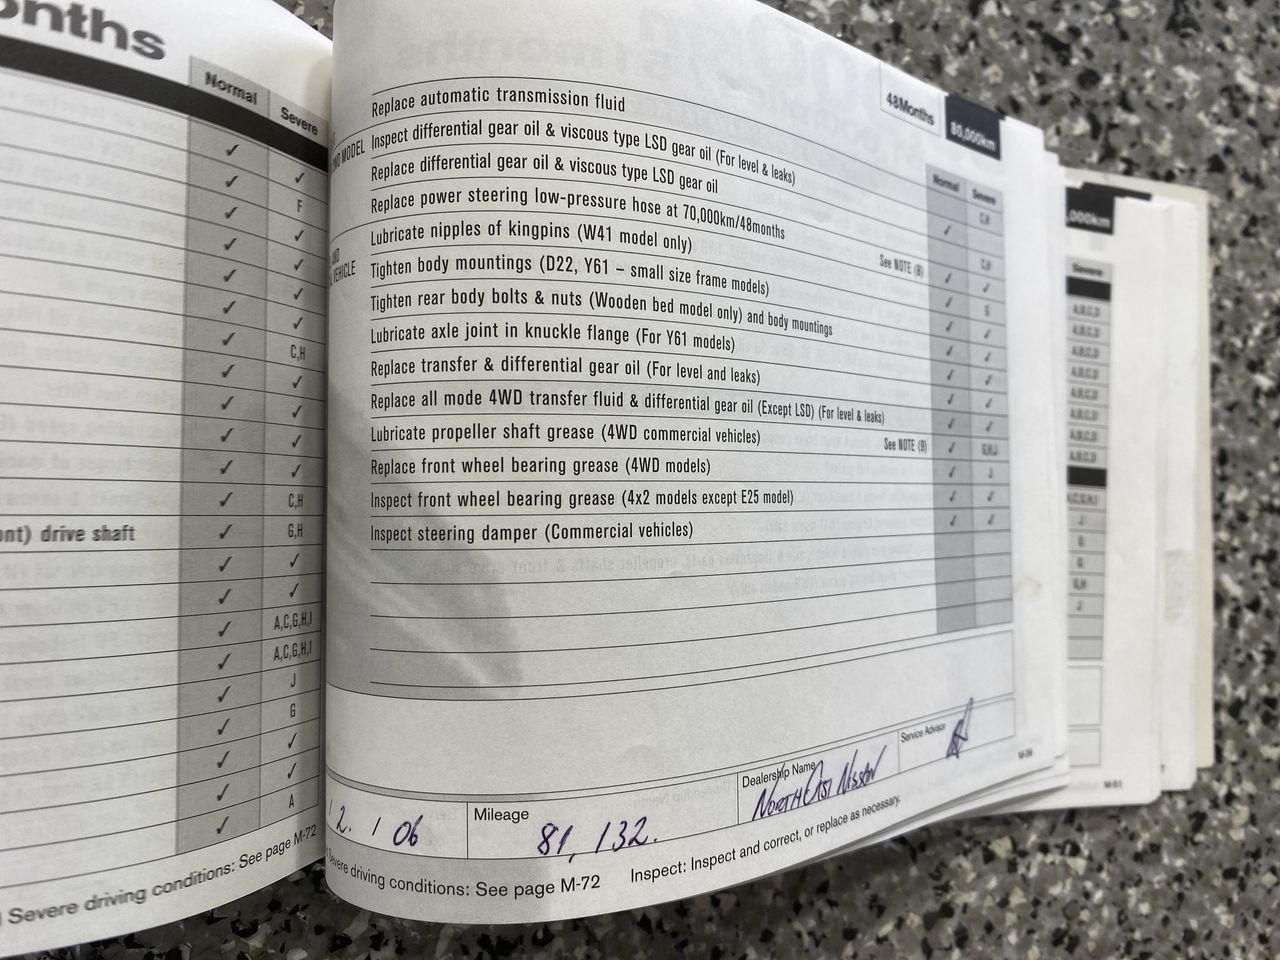 onths
Normal
Severe
✓
✓ ✓
✓ F
✓ ✓
✓ ✓
✓ ✓
✓ ✓
✓ C,H
✓ ✓
✓ ✓
✓ ✓
✓ ✓
✓ C,H
ont) drive shaft ✓ G,H
✓ ✓
✓ ✓
✓ A,C,G,H,I
✓ A,C,G,H,I
✓ J
✓ G
✓ ✓
✓ ✓
✓ A
Severe driving conditions: See page M-72
48Months
80,000km
Normal
Severe
Replace automatic transmission fluid C,H
MODEL
Inspect differential gear oil & viscous type LSD gear oil (For level & leaks) ✓
Replace differential gear oil & viscous type LSD gear oil C,H
Replace power steering low-pressure hose at 70,000km/48months See NOTE (8) ✓ ✓
Lubricate nipples of kingpins (W41 model only) ✓ G
VEHICLE
Tighten body mountings (D22, Y61 – small size frame models) ✓ ✓
Tighten rear body bolts & nuts (Wooden bed model only) and body mountings ✓ ✓
Lubricate axle joint in knuckle flange (For Y61 models) ✓ ✓
Replace transfer & differential gear oil (For level and leaks) ✓ ✓
Replace all mode 4WD transfer fluid & differential gear oil (Except LSD) (For level & leaks) ✓ ✓
Lubricate propeller shaft grease (4WD commercial vehicles) See NOTE (9) ✓ G,H,J
Replace front wheel bearing grease (4WD models) ✓ J
Inspect front wheel bearing grease (4x2 models except E25 model) ✓ ✓
Inspect steering damper (Commercial vehicles) ✓ ✓
2. / 06
Mileage
81,132.
Dealership Name
North East Nissan
Service Advisor
M-56
Severe driving conditions: See page M-72 Inspect: Inspect and correct, or replace as necessary.
,000km
Severe
A,B,C,D
A,B,C,D
A,B,C,D
A,B,C,D
A,B,C,D
A,B,C,D
A,B,C,D
A,B,C,D
A,C,G,H,I
J
G
G
G,H
J